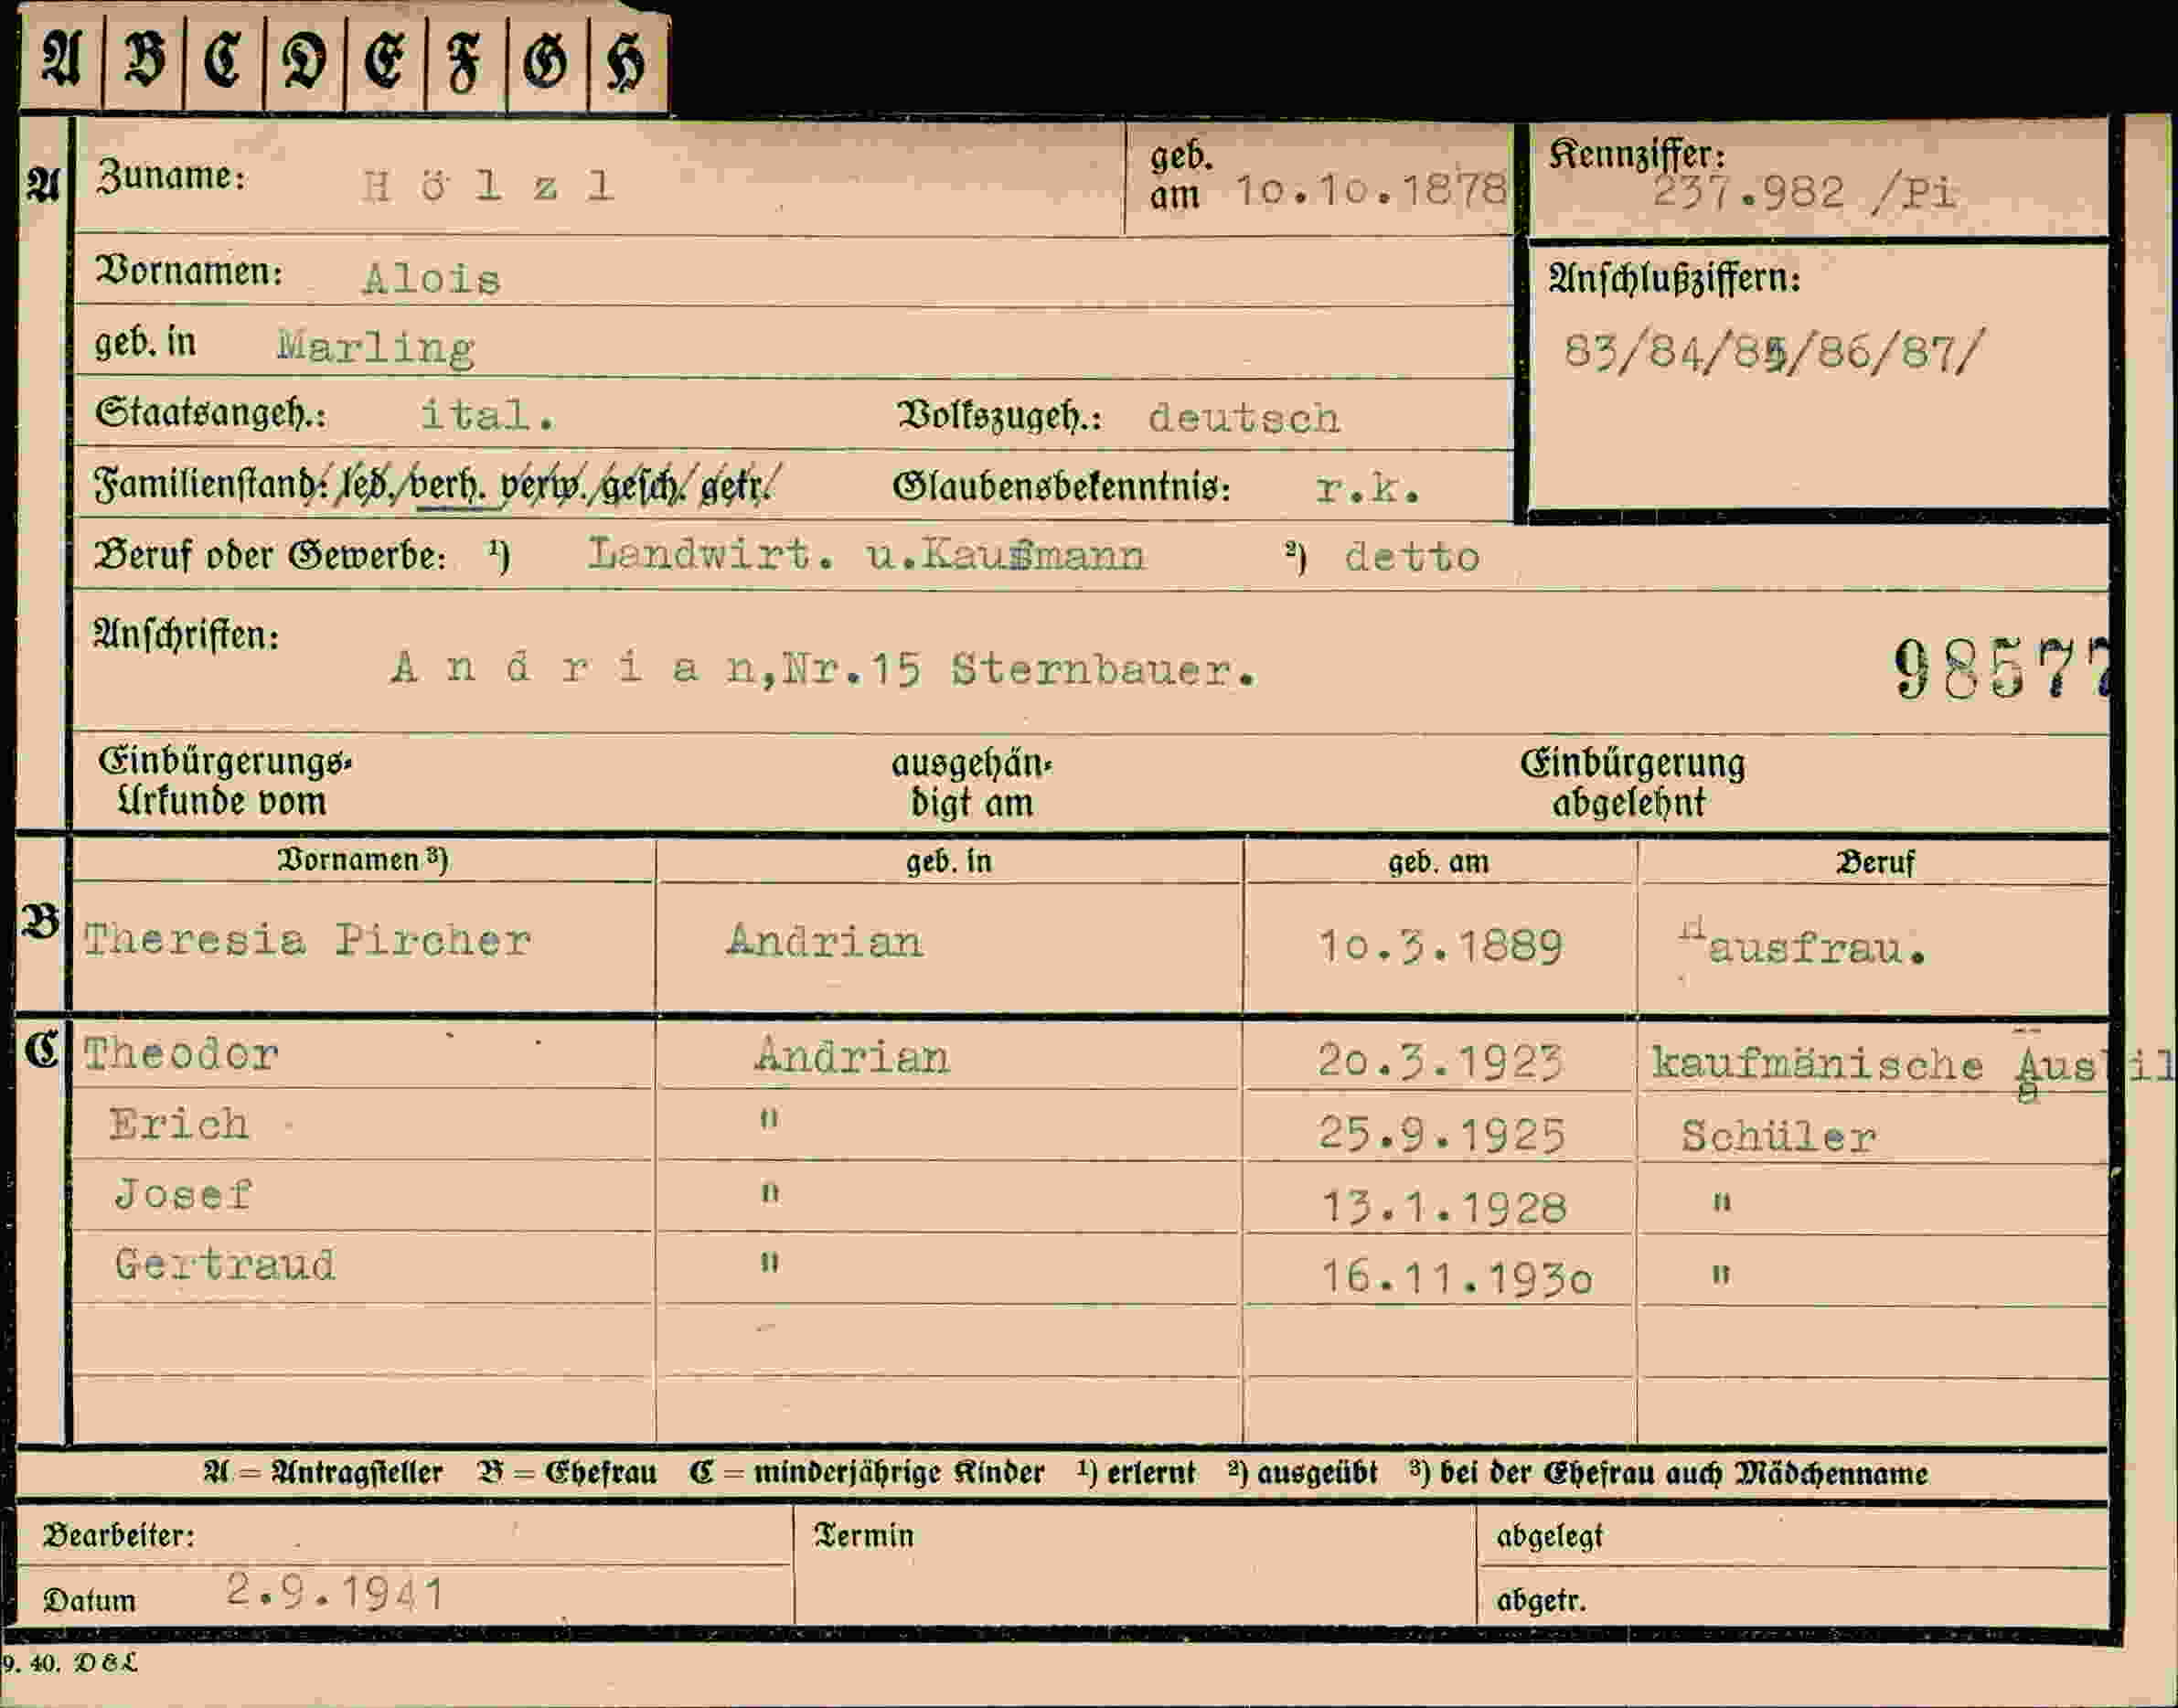 A B C D E F G H
A Zuname: Hölzl geb. am 10.10.1878 Kennziffer: 237.982 /Pi
Vornamen: Alois Anschlußziffern:
geb. in Marling 83/84/85/86/87/
Staatsangeh.: ital. Volkszugeh.: deutsch
Familienstand: led./verh. verw./gesch./getr. Glaubensbekenntnis: r.k.
Beruf oder Gewerbe: ¹) Landwirt. u.Kaufmann ²) detto
Anschriften:
Andrian,Nr.15 Sternbauer. 98577
Einbürgerungs- ausgehän- Einbürgerung
Urkunde vom digt am abgelehnt
Vornamen ³) geb. in geb. am Beruf
B Theresia Pircher Andrian 10.3.1889 Hausfrau.
C Theodor Andrian 20.3.1923 kaufmänische
Erich " 25.9.1925 Schüler
Josef " 13.1.1928 "
Gertraud " 16.11.1930 "
A = Antragsteller B = Ehefrau C = minderjährige Kinder ¹) erlernt ²) ausgeübt ³) bei der Ehefrau auch Mädchenname
Bearbeiter: Termin abgelegt
Datum 2.9.1941 abgetr.
9. 40. D & L